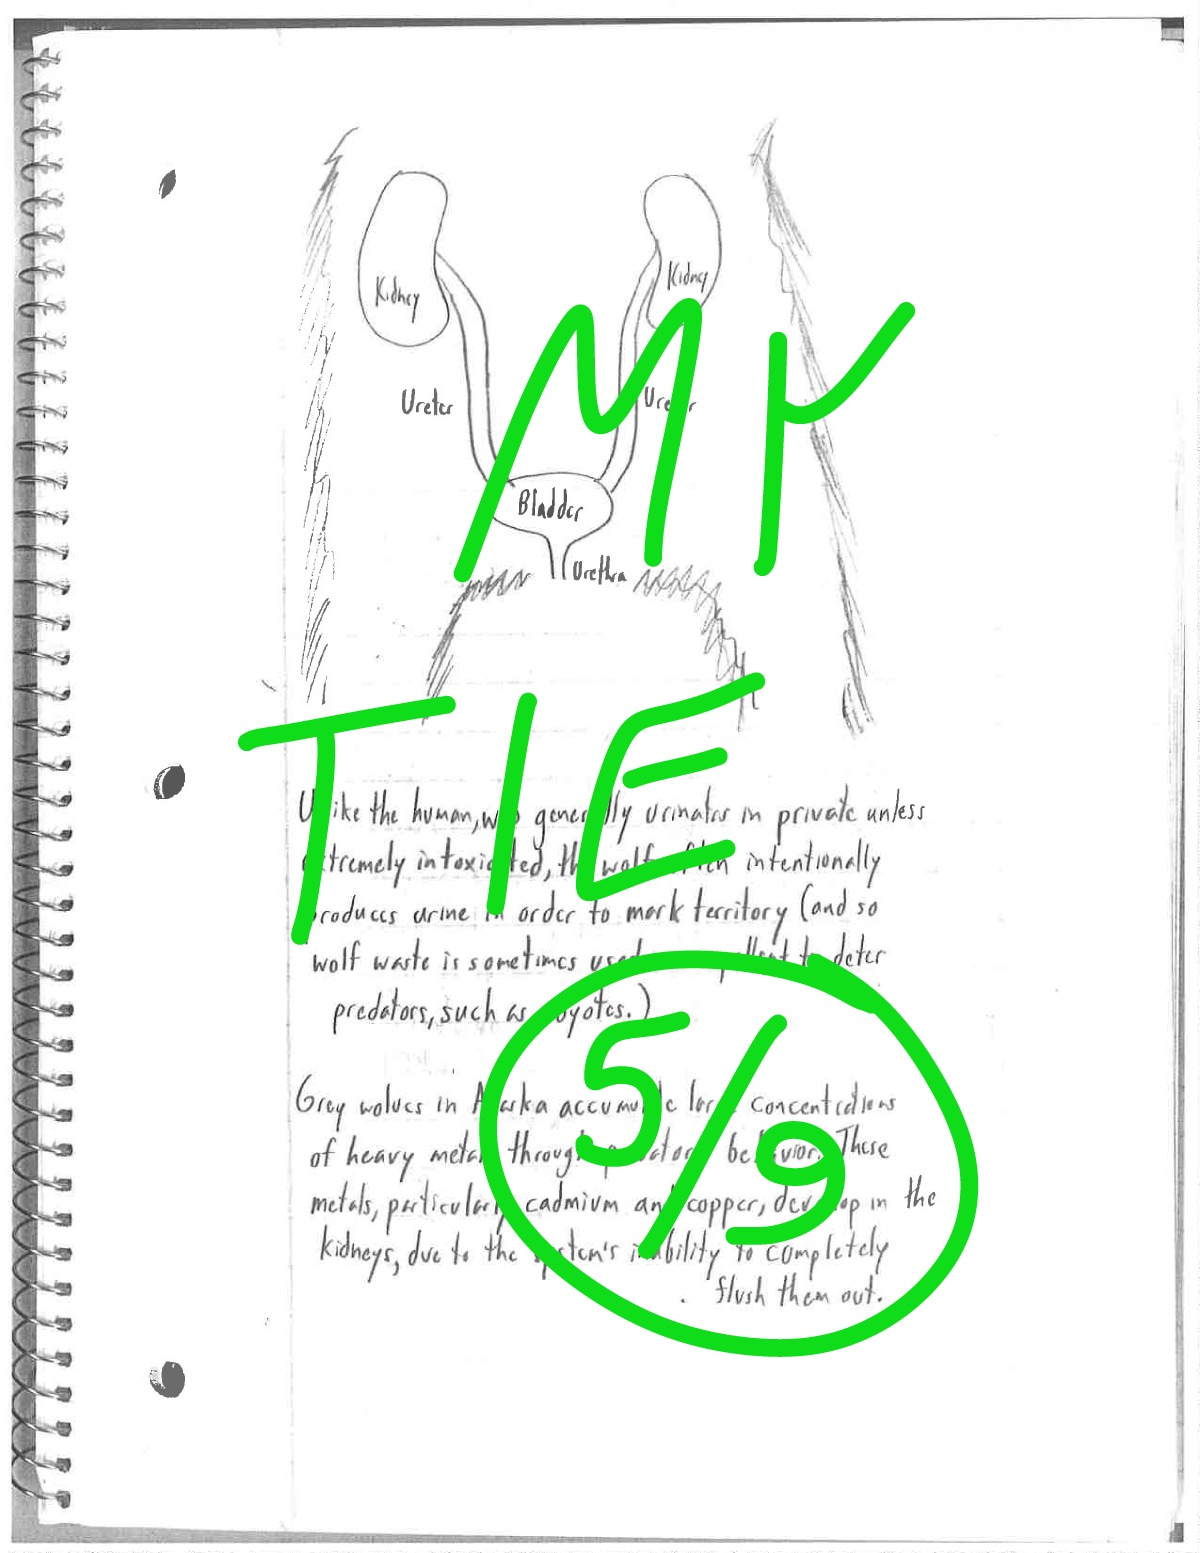 Kidney Kidney
Ureter Ureter
Bladder
Urethra
Mr
TIE
Unlike the human, who generally urinates in private unless
extremely intoxicated, the wolf often intentionally
produces urine in order to mark territory (and so
wolf waste is sometimes used repellent to deter
predators, such as coyotes.)
5/9
Grey wolves in Alaska accumulate large concentrations
of heavy metals through predatory behavior. These
metals, particularly cadmium and copper, develop in the
kidneys, due to the system's inability to completely
flush them out.